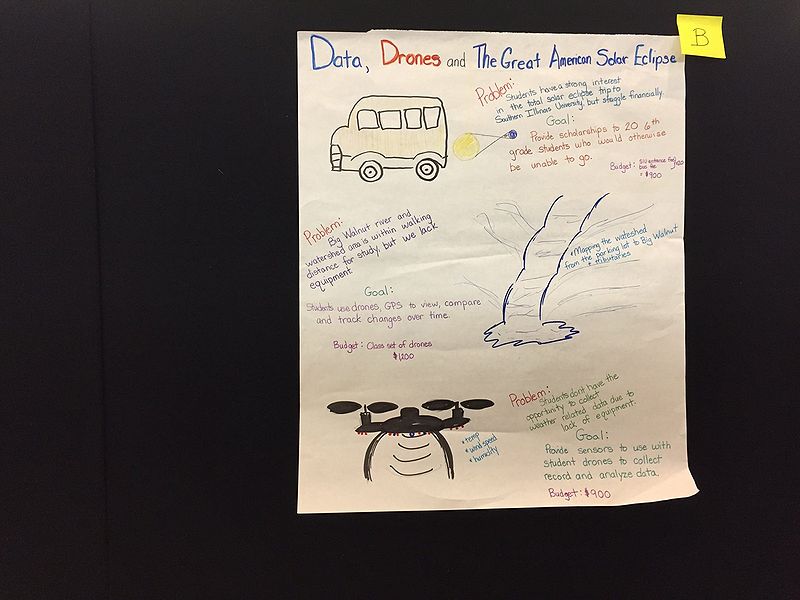 B
Data, Drones and The Great American Solar Eclipse
Problem:
Students have a strong interest
in the total solar eclipse trip to
Southern Illinois University, but struggle financially.
Goal:
Provide scholarships to 20 6th
grade students who would otherwise
be unable to go.
Budget: SIU entrance fee/
bus fee
= $900
Problem:
Big Walnut river and
watershed area is within walking
distance for study, but we lack
equipment
Goal:
Students use drones, GPS to view, compare
and track changes over time.
Budget: Class set of drones
$1,200
• Mapping the watershed
from the parking lot to Big Walnut
• tributaries
• temp
• wind speed
• humidity
Problem:
Students don't have the
opportunity to collect
weather related data due to
lack of equipment.
Goal:
Provide sensors to use with
student drones to collect
record and analyze data.
Budget: $900